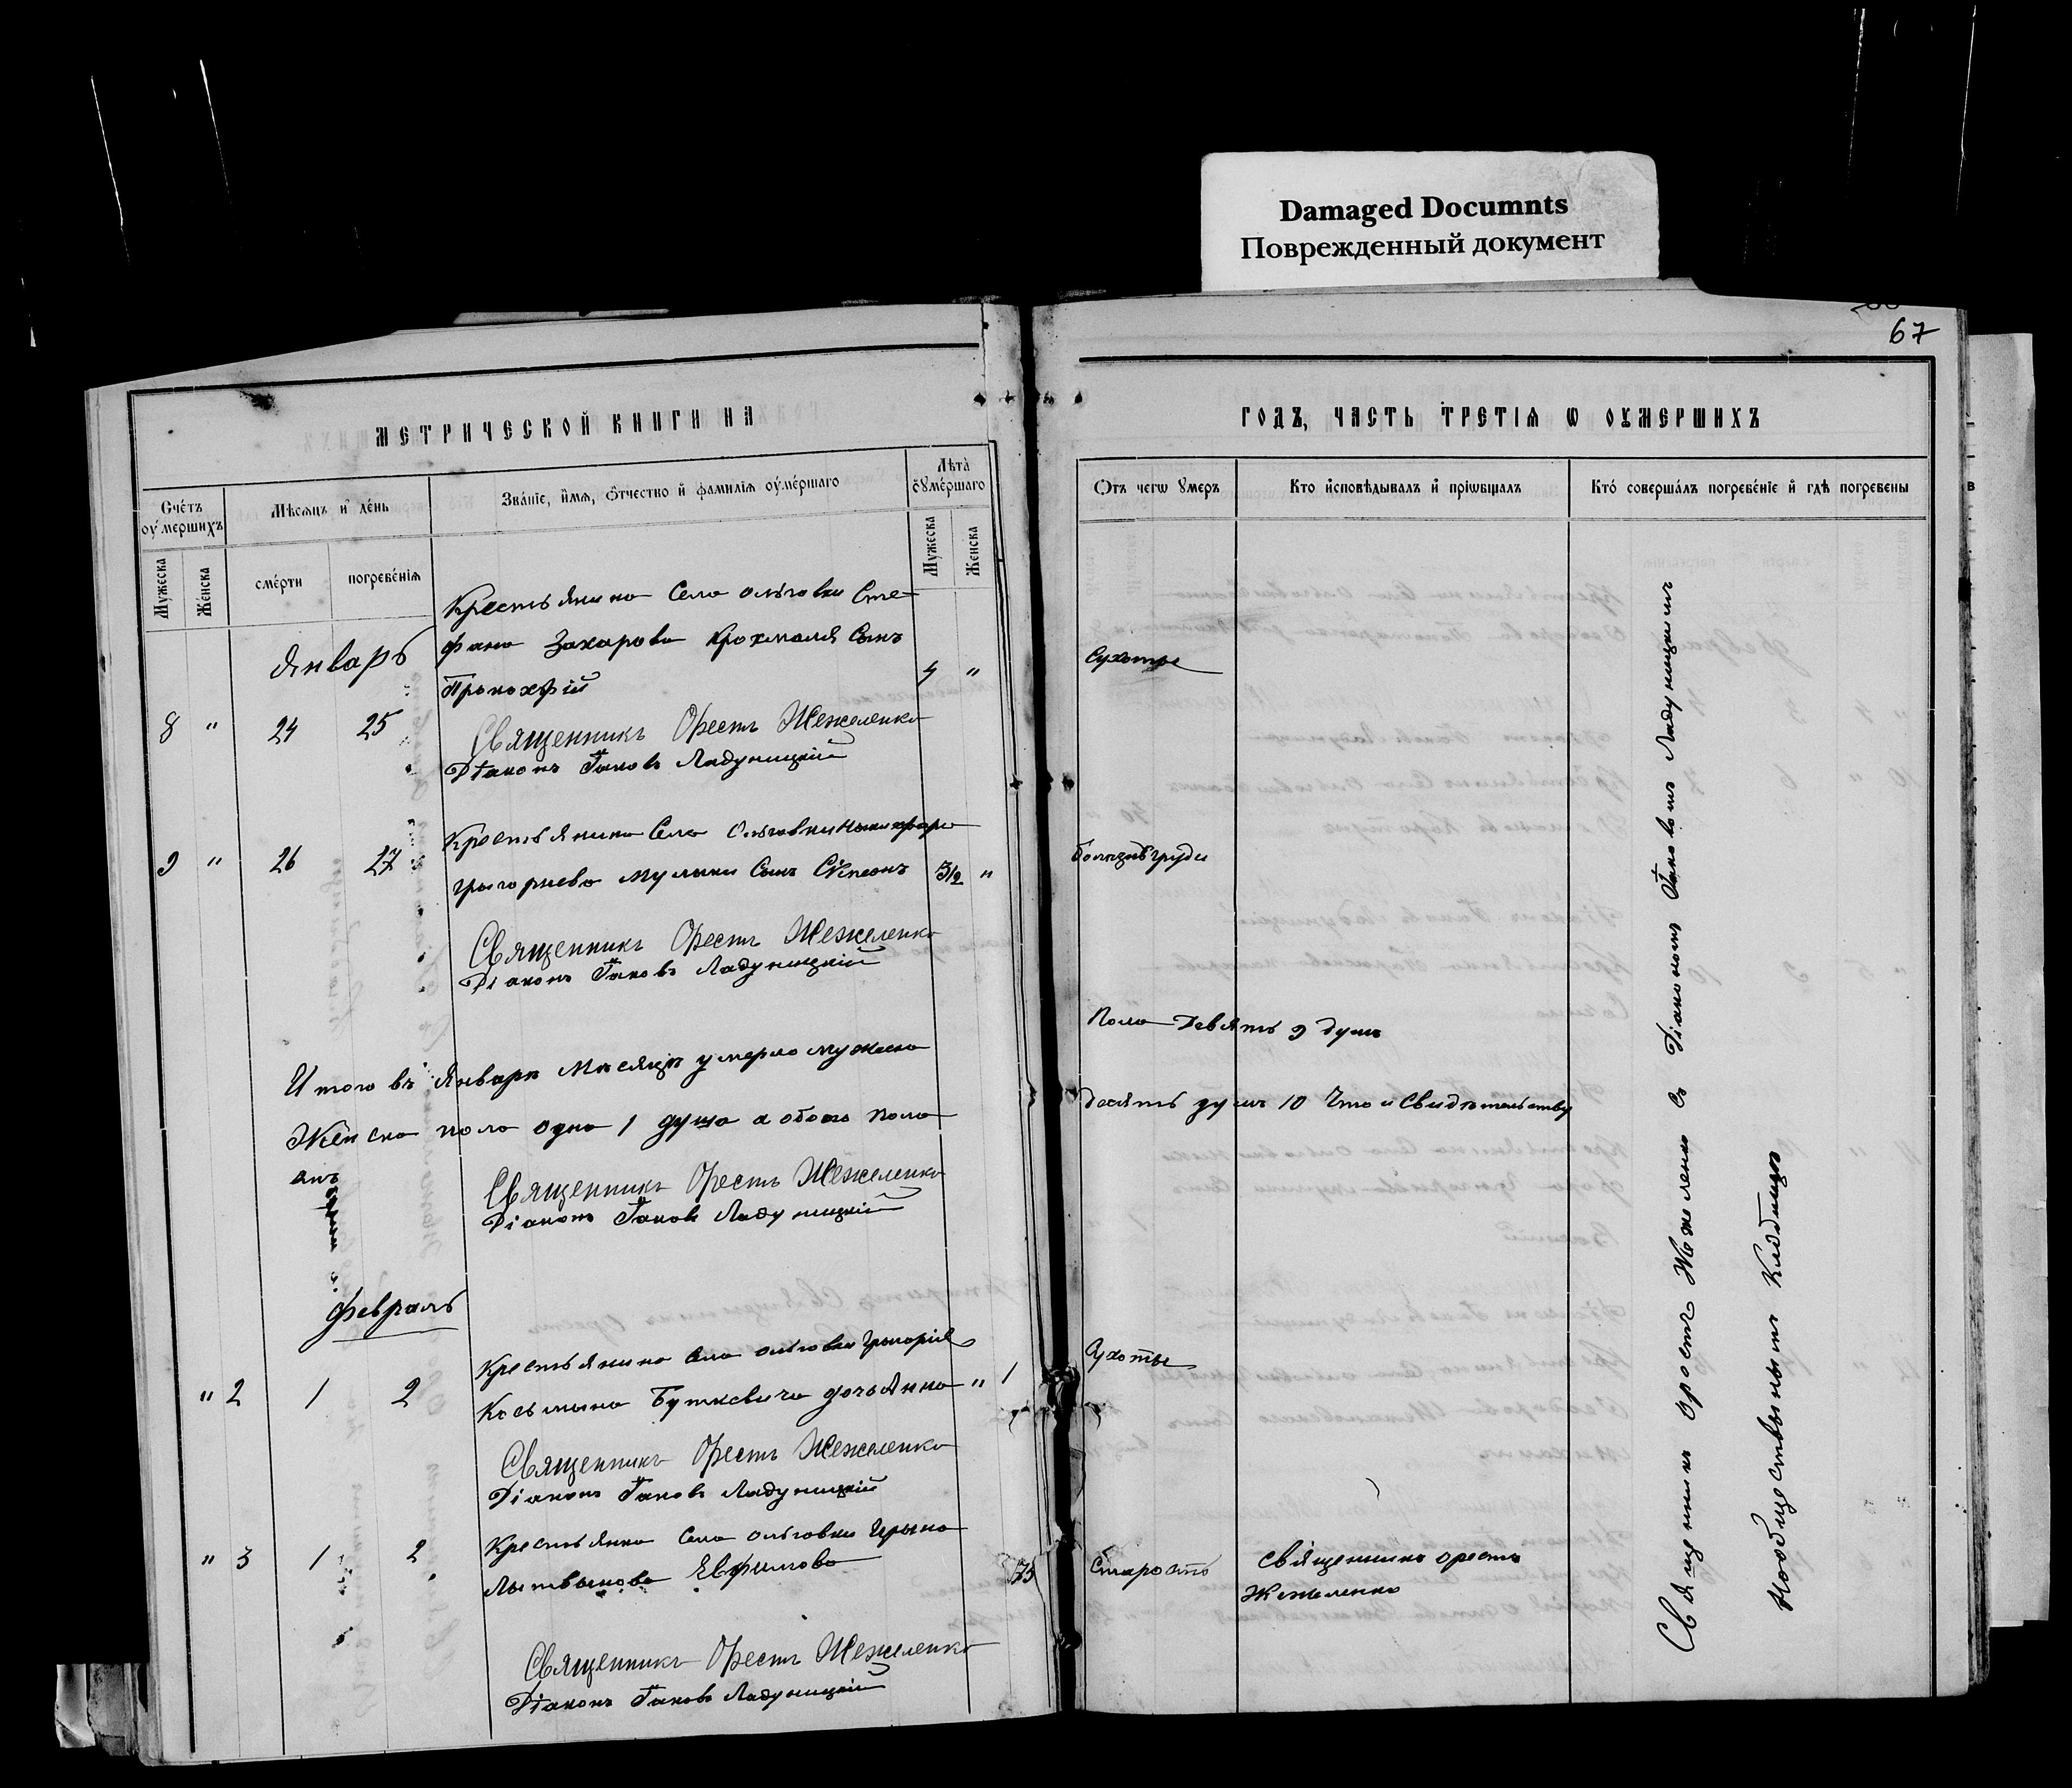 Damaged Documnts
Поврежденный документ
67
МЕТРИЧЕСКОЙ КНИГИ НА
ГОДЪ, ЧАСТЬ ТРЕТІЯ Ѡ ОУМЕРШИХЪ
Счетъ оумершихъ
Мѣсяцъ и день
Званіе, имя, отчество и фамилія оумершаго
Лѣта оумершаго
Мужеска
Женска
смерти
погребенія
Мужеска
Женска
Отъ чегѡ умеръ
Кто исповѣдывалъ и пріѡбщалъ
Кто совершалъ погребеніе и гдѣ погребены
Январь
Крестьянина Села Ольговки Сте-
фана Захарова Крохмаля Сынъ
Прокохфій
8 " 24 25
4 "
Сухоты
Священникъ Орестъ Жежеленко
Діаконъ Іаковъ Ладуницкій
Крестьянина Села Ольговки Никифора
9 " 26 27
Григориева Мулыки Сынъ Сѵмеонъ
3 1/2 "
болезнь груди
Священникъ Орестъ Жежеленко
Діаконъ Іаковъ Ладуницкій
Итого въ Январѣ Мѣсяцѣ умерло мужеска
Пола Девять 9 душъ
Женска пола одна 1 душа а обоего пола
десять душъ 10 Что и Свидѣтельству
емъ
Священникъ Орестъ Жежеленко
Діаконъ Іаковъ Ладуницкій
Февраль
Крестьянина Села Ольговки Григорія
" 2 1 2
Косьмина Буткевича дочь Анна
" 1
Сухоты
Священникъ Орестъ Жежеленко
Діаконъ Іаковъ Ладуницкій
Крестьянка Села Ольговки Ирына
" 3 1 2
Лытвынова Евфимова
75
Старость
Священникъ Орестъ
Жежеленко
Священникъ Орестъ Жежеленко
Діаконъ Іаковъ Ладуницкій
Священникъ Орестъ Жежеленко съ Діакономъ Іаковомъ Ладуницкимъ
Наобщественномъ Кладбищѣ